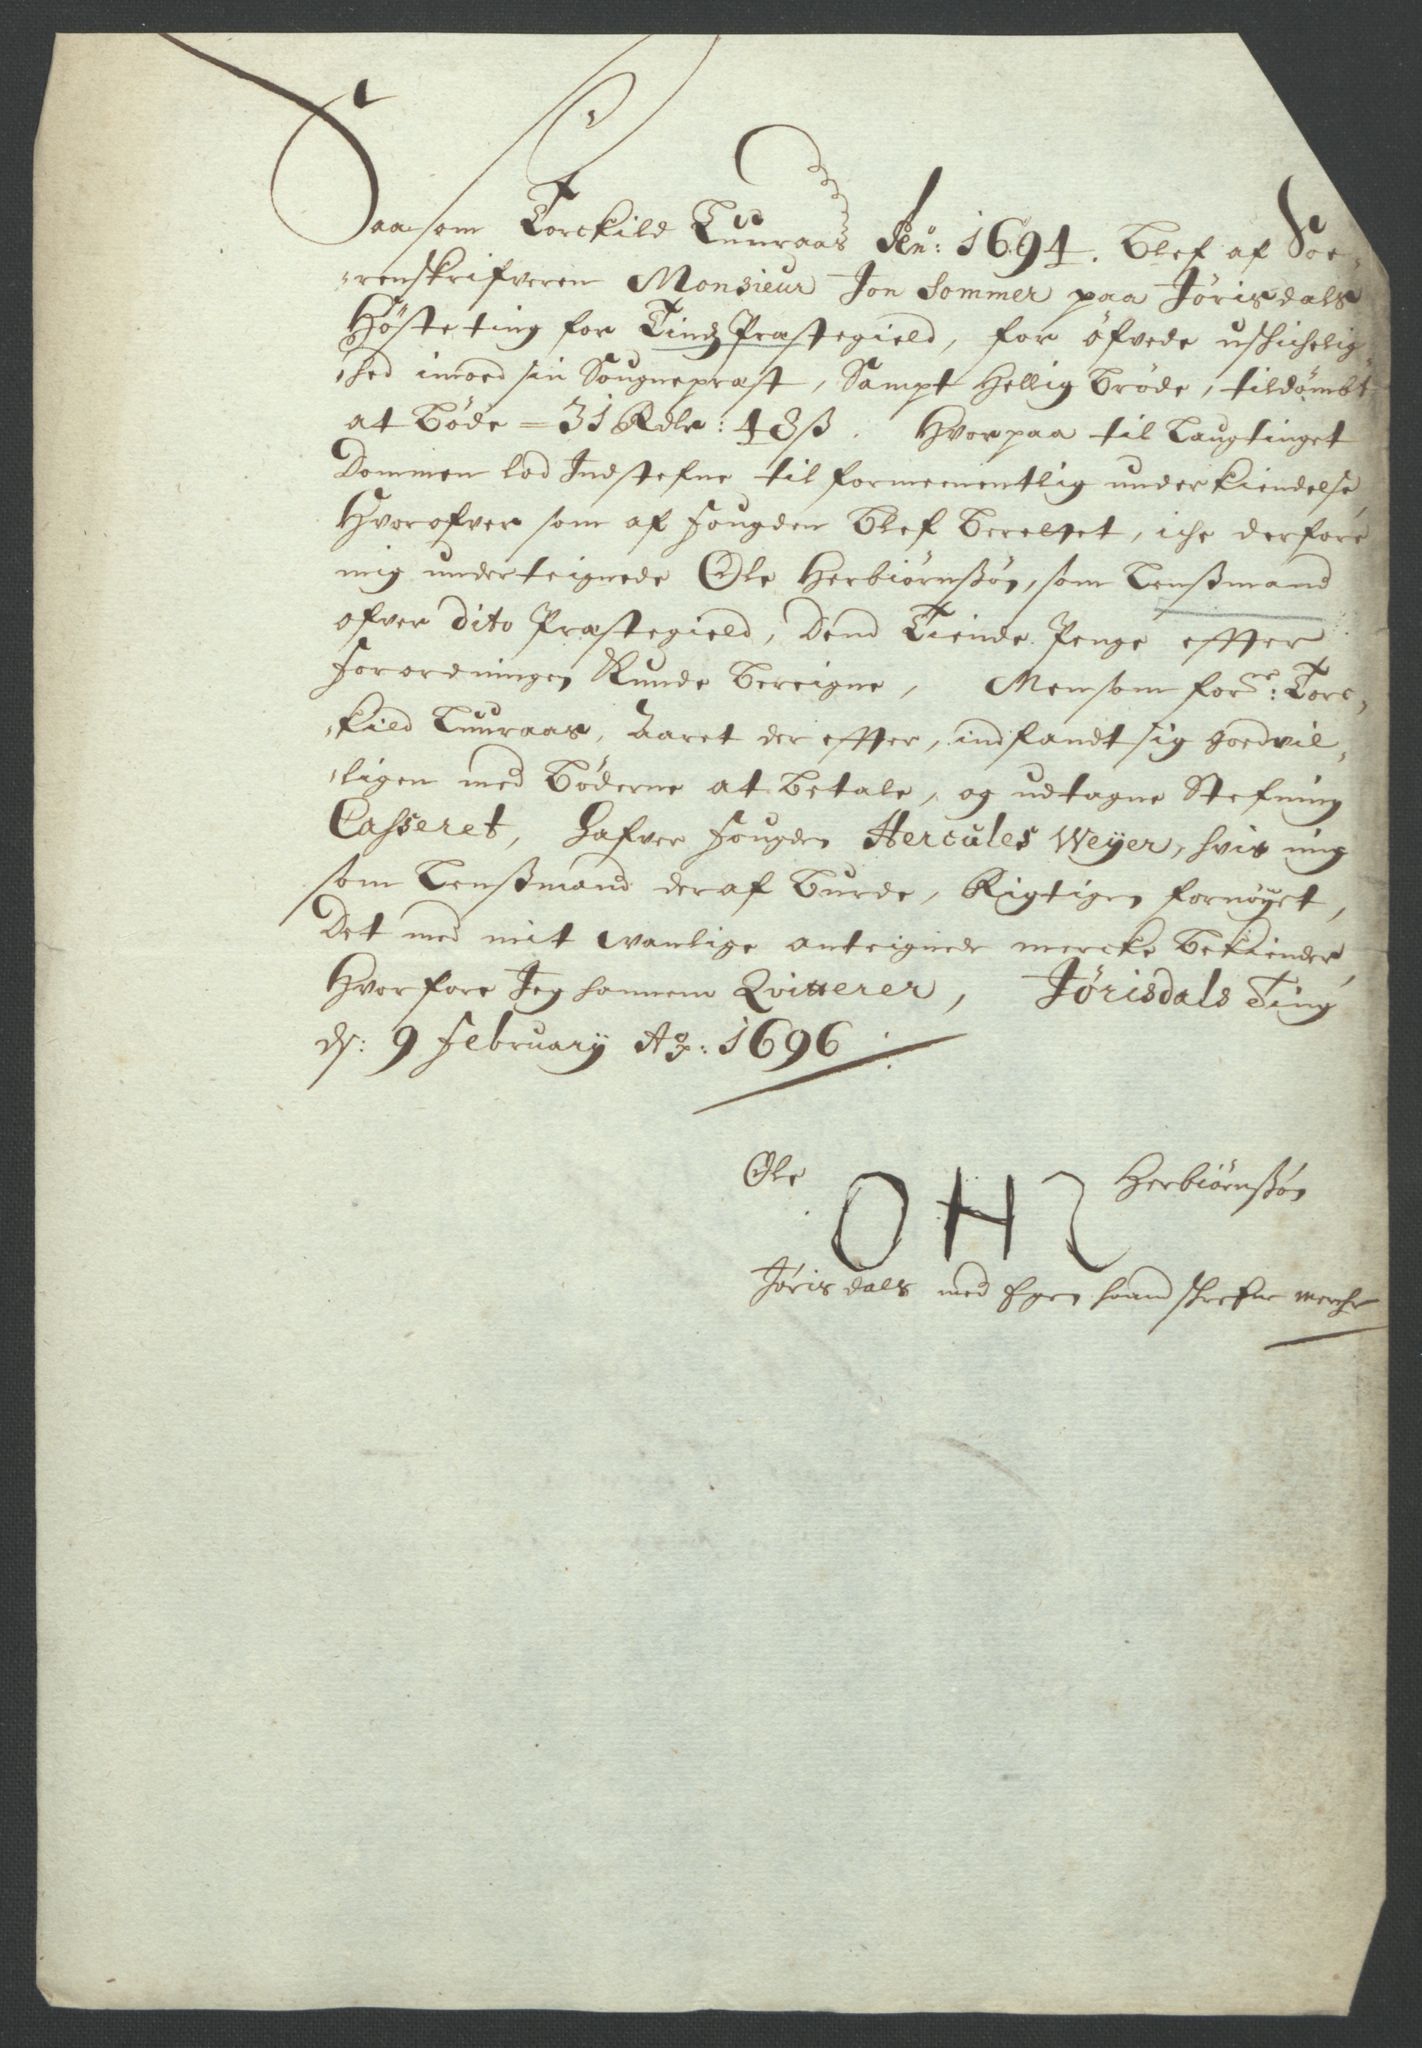 Saasom Torckild Luuraas Año: 1694. blef af Soe-
renskrifveren Monsieur Jon Sommer paa Jörisdals
Hösteting for Tindz Præstegield, for öfvede uschichelig-
hed imoed sin Sougnepræst, Sampt Hellig Bröde, tildömbt
at Böde = 31 Rdlr: 48 ß. Hvorpaa til Laugtinget
Dommen lod Indstefne til formeenentlig underkiendelse
Hvorofver som af fougden blef berettet, iche derfore
mig underteignede Ole Herbiörnßön, som Lenßmand
ofver dito Præstegield, Dend Tiende Penge effter
forordningen Kunde bereigne, Men som forne: Torc-
kild Luuraas, Aaret der effter, indfandt sig goedvil-
ligen med Böderne at betale, og udtagne Stefning
Casseret, Hafver fougden Hercules Weyer, hvis mig
som Lenßmand deraf burde, Rigtigen fornöyet,
Det med mit wanlige anteignede mercke bekiender,
Hvorfore Jeg hannem Qvitterer, Jörisdals Ting
ds: 9 February Ao: 1696
Ole OHS Herbiörnßön
Jörisdals med Egen haand schrefne merche